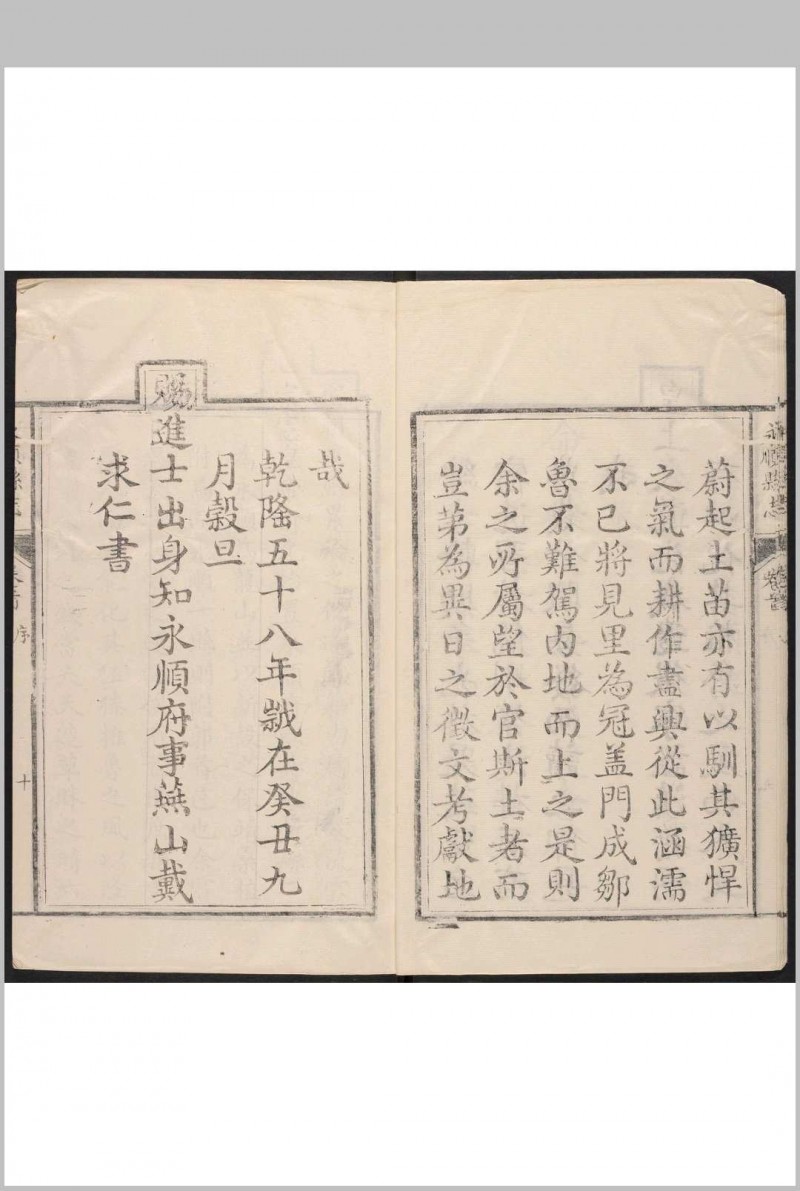 永順縣志
卷首
蔚起土苗亦有以馴其獷悍
之氣而耕作盡興從此涵濡
不已將見里為冠盖門成鄒
魯不難駕內地而上之是則
余之所屬望於官斯土者而
豈第為異日之徵文考獻地
哉
乾隆五十八年歲在癸丑九
月穀旦
賜進士出身知永順府事燕山戴
求仁書
序
十